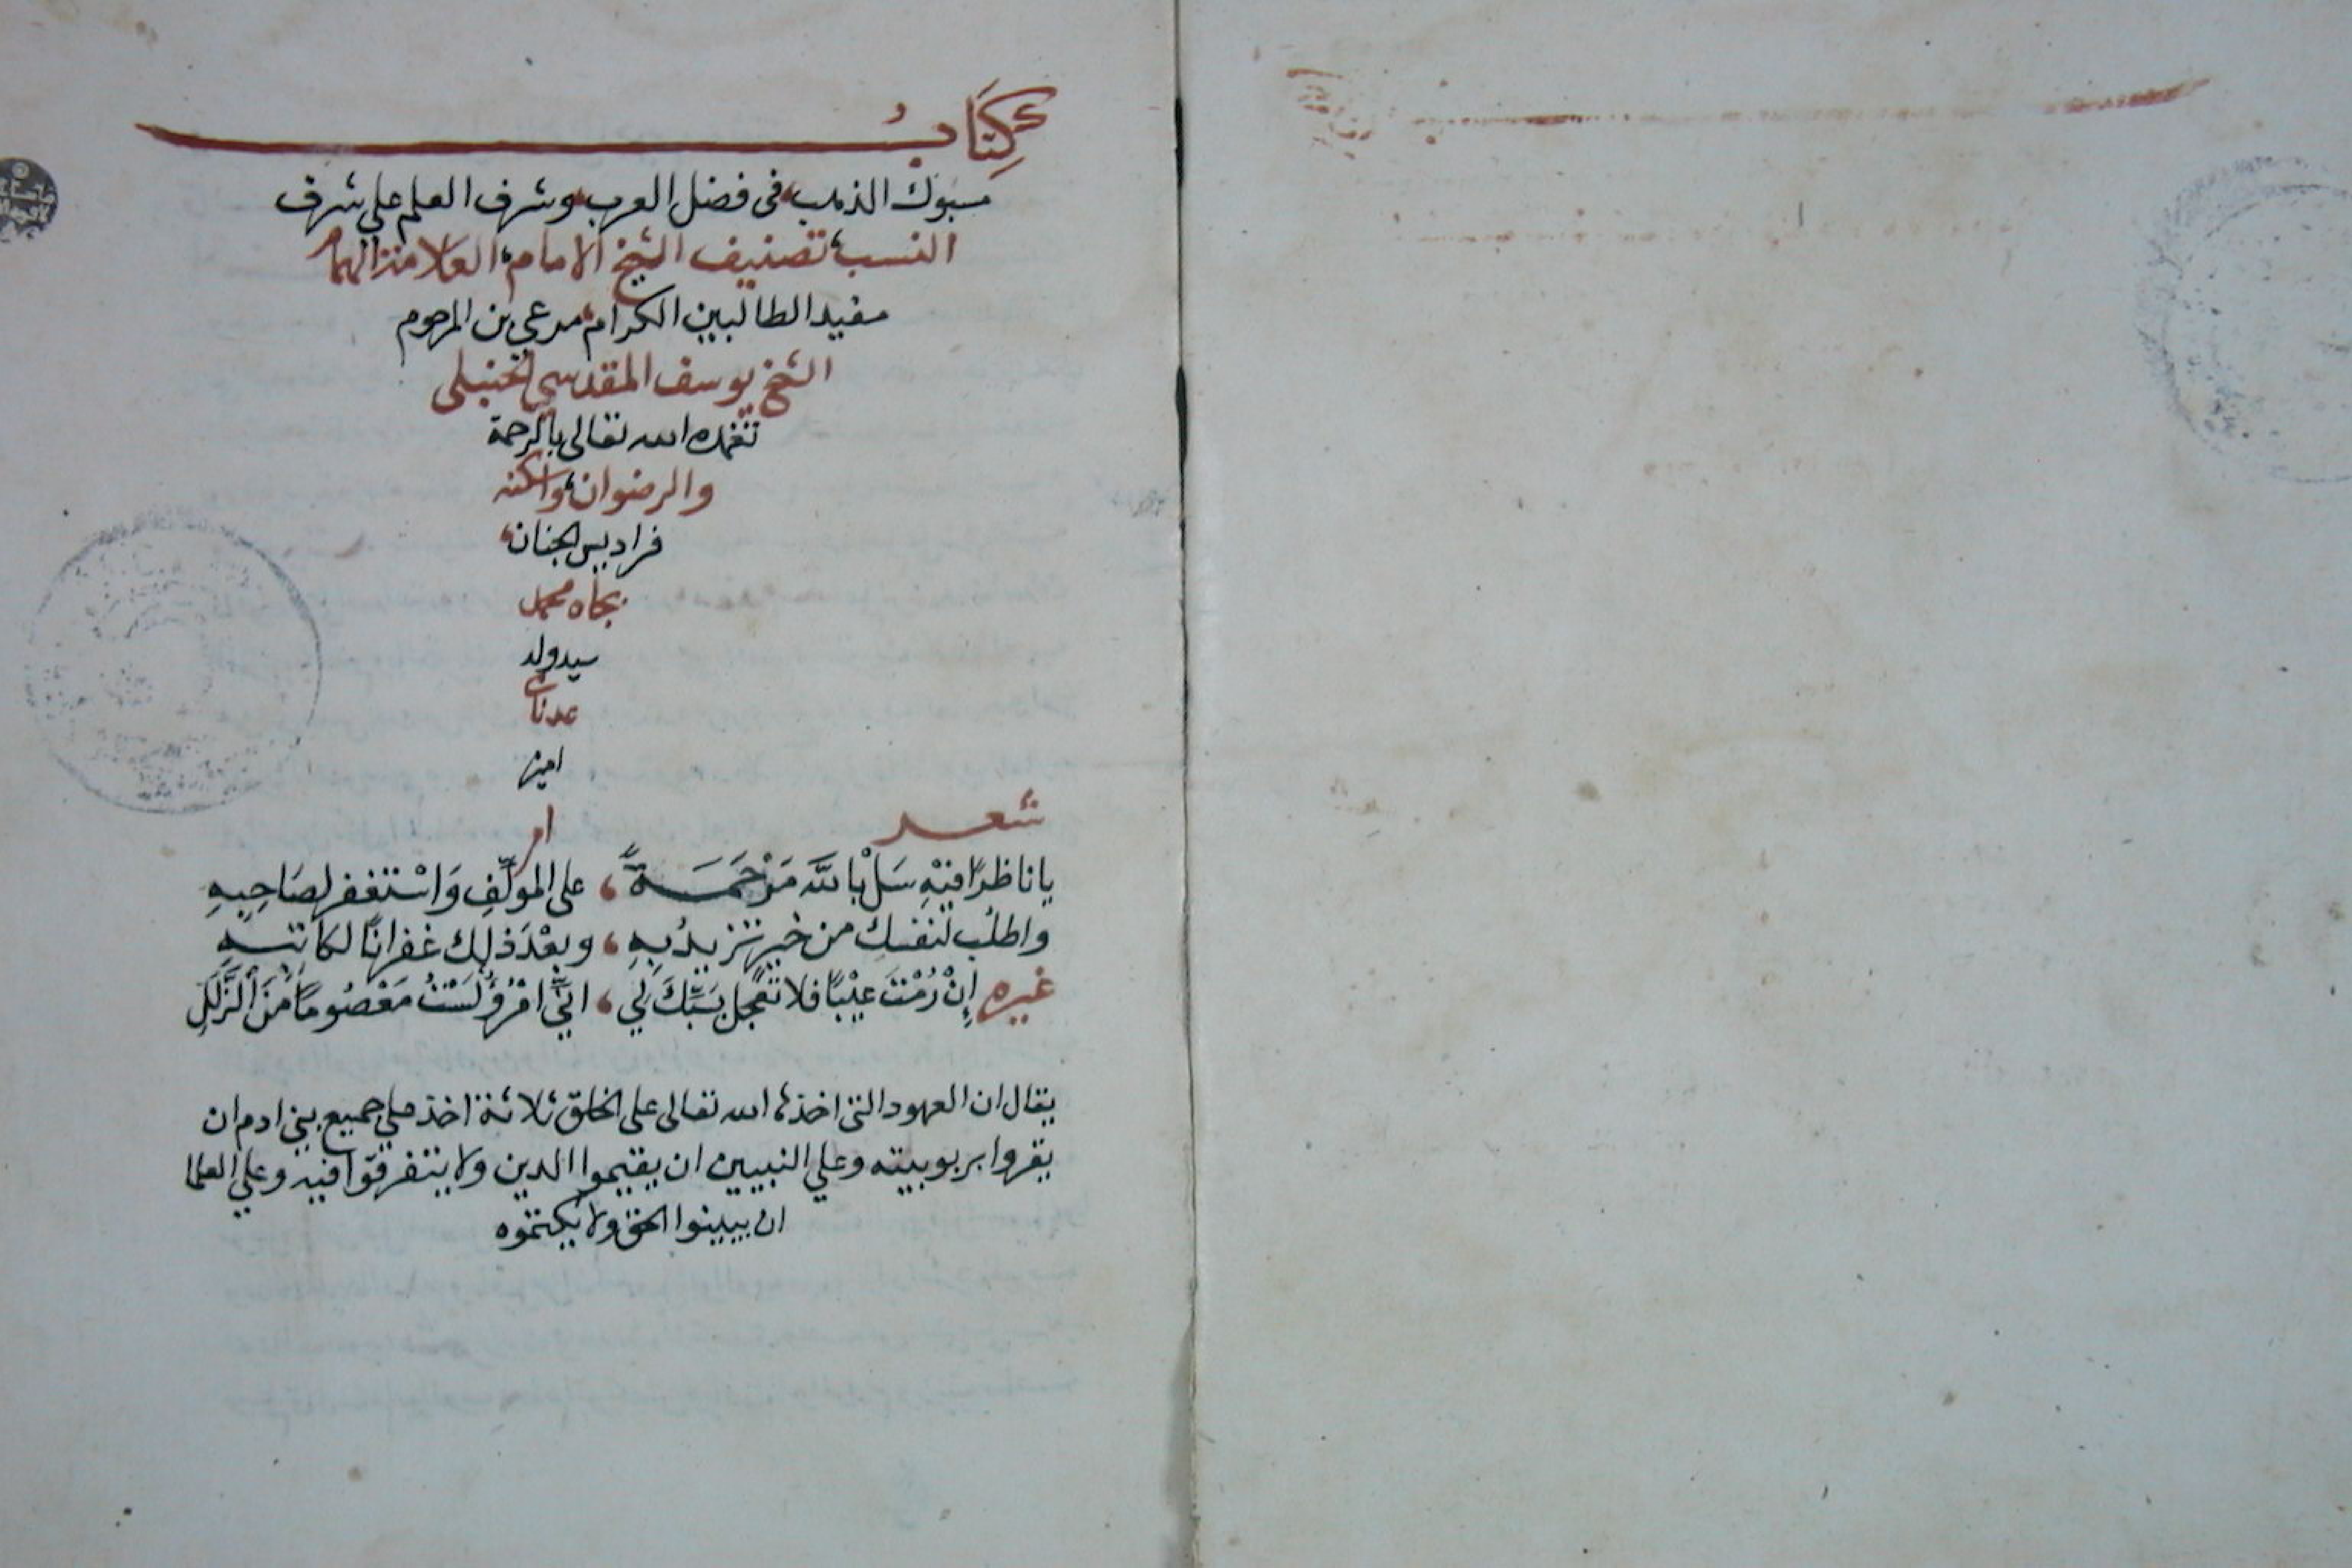 كِتَابُ
مسبوك الذهب في فضل العرب وشرف العلم علي شرف
النسب تصنيف الشيخ الامام العلامة الهمام
مفيد الطالبين الكرام مرعي بن المرحوم
الشيخ يوسف المقدسي الحنبلي
تغمده الله تعالى بالرحمة
والرضوان واسكنه
فراديس الجنان
بجاه محمد
سيد ولد
عدنان
امين
ام
شعر
يا ناظرًا فيْهِ سَلْ بالله مَرْحَمَةً على المولِّفِ وَاسْتغفر لصَاحِبِهِ
واطلُب لنفسك من خير تزيدُ بِهِ وبعْدَ ذلك غفرانًا لكاتبِهِ
غيره إِنْ رُمْتَ عيْبًا فلا تعجل بسَبِّكَ لي انيِّ امْرُؤٌ لَسْتُ مَعْصُومًا مِنَ ألزَّلَلِ
يقال ان العهود التي اخذها الله تعالى على الخلق ثلاثة اخذ علي جميع بني ادم ان
يقروا بربوبيته وعلي النبيين ان يقيموا الدين ولا يتفرقوا فيه وعلي العلما
ان يبينوا الحق ولا يكتموه